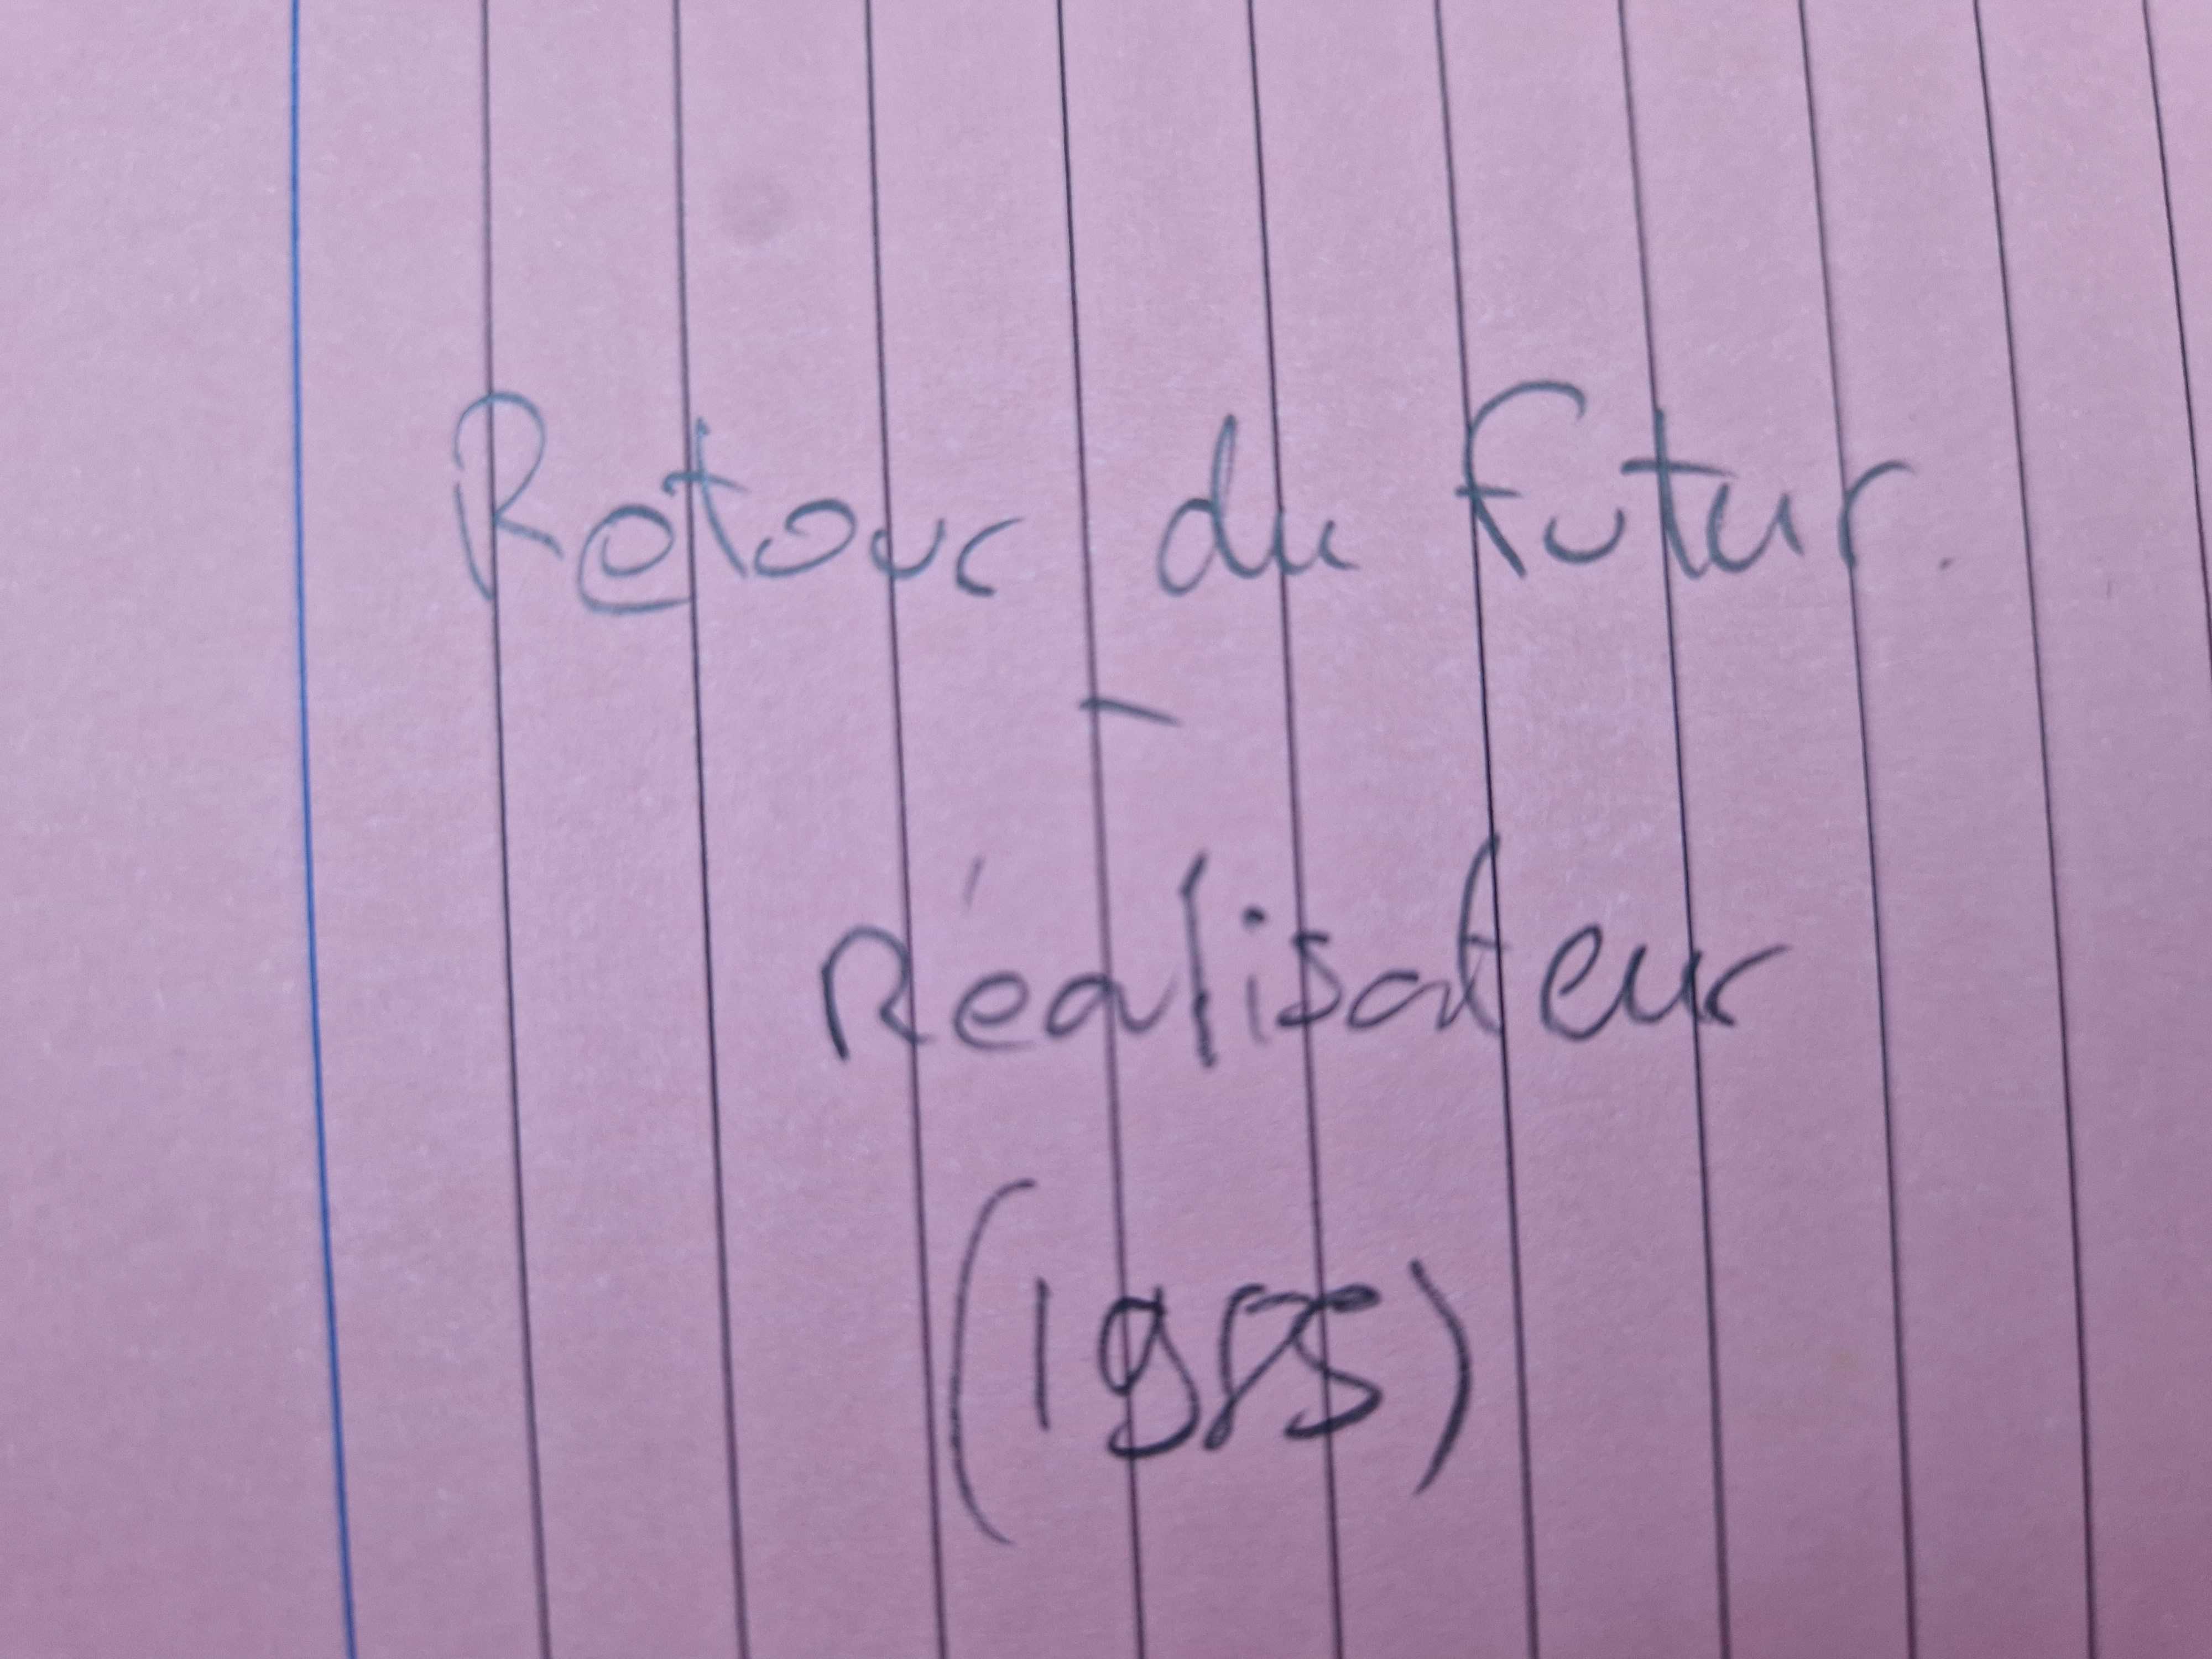 Retour du futur.
-
Réalisateur
(1985)